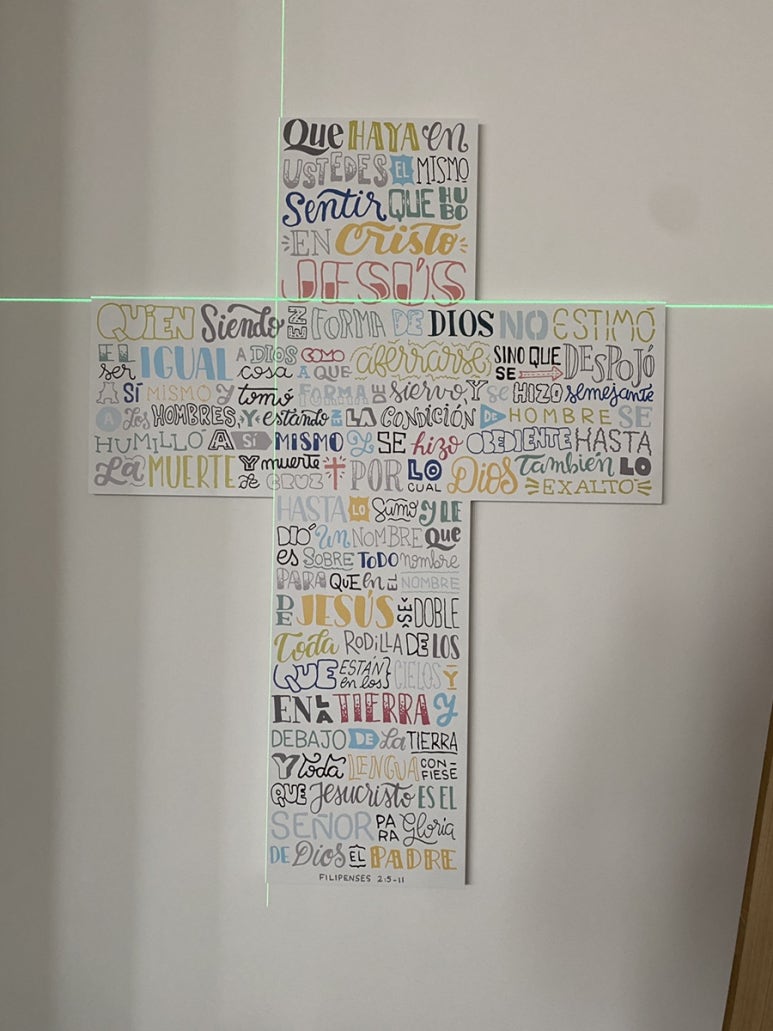 Que HAYA en
USTEDES EL MISMO
Sentir QUE HUBO
EN Cristo
JESÚS
QUIEN Siendo EN FORMA DE DIOS NO ESTIMÓ
EL ser IGUAL A DIOS COMO cosa A QUE aferrarse, SINO QUE SE DESPOJÓ
A SÍ MISMO Y tomó FORMA DE siervo, Y se HIZO semejante
A los HOMBRES, Y estando EN LA CONDICIÓN DE HOMBRE SE
HUMILLÓ A SÍ MISMO Y SE hizo OBEDIENTE HASTA
La MUERTE Y muerte de CRUZ POR LO CUAL Dios también LO EXALTÓ
HASTA LO Sumo Y LE
DIÓ Un NOMBRE Que
es SOBRE TODO nombre
PARA QUE en EL NOMBRE
DE JESÚS SE DOBLE
Toda RODILLA DE LOS
QUE ESTÁN en los CIELOS Y
EN LA TIERRA Y
DEBAJO DE La TIERRA
Y toda LENGUA CONFIESE
QUE Jesucristo ES EL
SEÑOR PARA Gloria
DE Dios EL PADRE
FILIPENSES 2:5-11